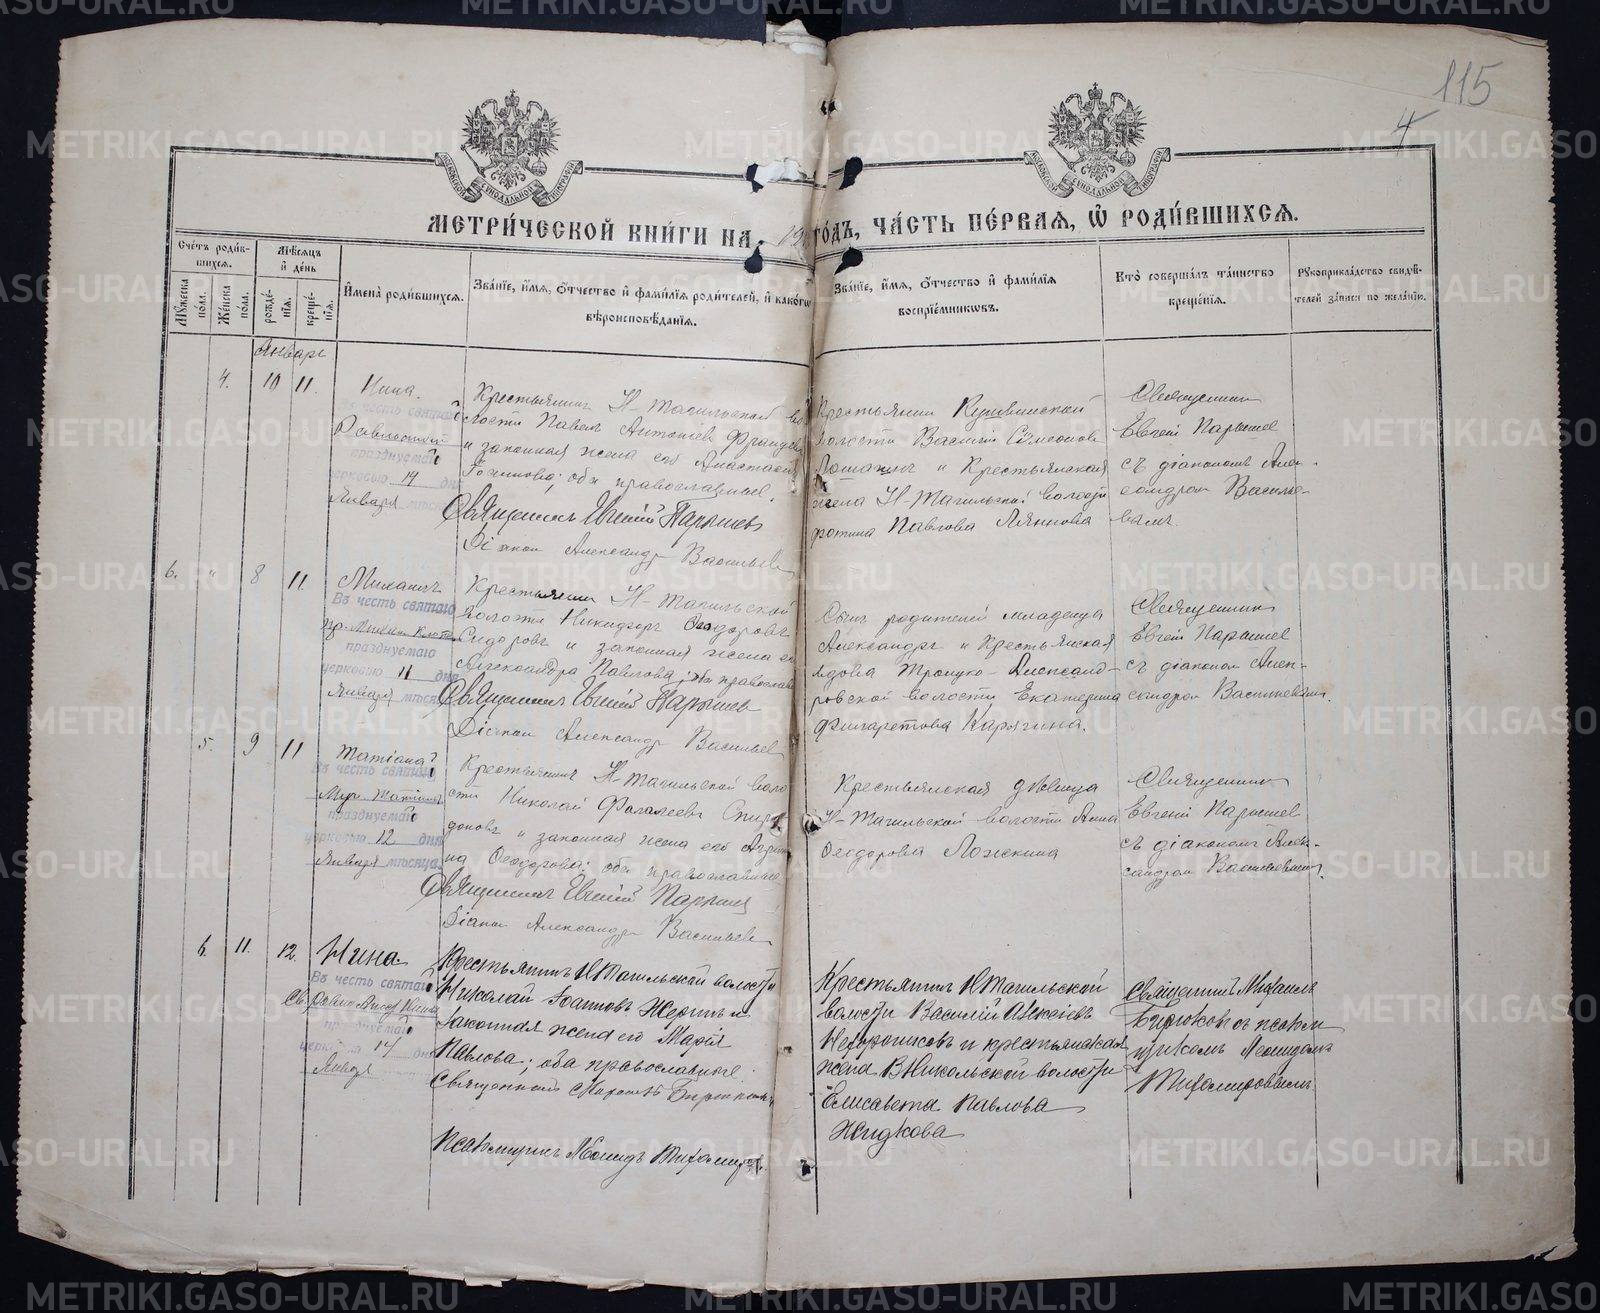 115
4
МОСКОВСКОЙ СѴНОДАЛЬНОЙ ТИПОГРАФІИ
МОСКОВСКОЙ СѴНОДАЛЬНОЙ ТИПОГРАФІИ
МЕТРИ́ЧЕСКОЙ КНИ́ГИ НА 19 ГО́ДЪ, ЧА́СТЬ ПЕ́РВАЯ, Ѽ РОДИ́ВШИХСЯ.
Сче́тъ роди́вшихся.
Мѣ́сяцъ и҆ де́нь
Мꙋ́жеска по́ла.
Же́нска по́ла.
рожде́нїя.
креще́нїя.
И҆мена̀ роди́вшихся.
Зва́нїе, и҆́мя, ѻ҆́тчество и҆ фамі́лїя роди́телей, и҆ како́гѡ
вѣроисповѣ́данїя.
Зва́нїе, и҆́мя, ѻ҆́тчество и҆ фамі́лїя
воспрїе́мникѡвъ.
Кто̀ соверша́лъ та́инство
креще́нїя.
Рꙋкоприкла́дство свидѣ́телей за́писи по жела́нїю.
Январь
4. 10 11.
Нина.
Въ честь святой
Равноап
празднуемой
церковью 14 дня
Января мѣсяца
Крестьянинъ Н-Тагильской во
лости Павелъ Антоніевъ
и законная жена его Анастасія
оба православные.
Священникъ Евгеній Нарышев
Діаконъ Александръ Васильевъ
Крестьянинъ Кушвинской
волости Василій Симеоновъ
и Крестьянская
жена Н-Тагильской волости
Павлова
Священникъ
Евгеній Нарышев
съ діакономъ Алек-
сандром Василье-
вымъ.
6. " 8 11.
Михаилъ
Въ честь святаго
пр. Михаила
празднуемаго
церковью 11 дня
Января мѣсяца
Крестьянинъ Н-Тагильской
волости Никифоръ Ѳеодоровъ
Сидоровъ и законная жена его
Александра Павлова; оба православ
Священникъ Евгеній Нарышев
Діаконъ Александръ Васильевъ
Сынъ родителей младенца
Александръ и Крестьянская
вдова Троицко-Александ-
ровской волости Екатерина
Филаретова Карягина.
Священникъ
Евгеній Нарышев
съ діакономъ Алек-
сандром Васильевымъ.
5. 9 11
Татіана
Въ честь святой
Муч. Татіаны
празднуемой
церковью 12 дня
Января мѣсяца
Крестьянинъ Н-Тагильской воло
сти Николай Спири
доновъ и законная жена его
на Ѳеодорова: оба православные
Священникъ Евгеній Нарышев
Діаконъ Александръ Васильевъ
Крестьянская дѣвица
Н-Тагильской волости Анна
Ѳеодорова Ложкина
Священникъ
Евгеній Нарышев
съ діакономъ Алек-
сандром Васильевымъ.
6. 11. 12.
Нина
Въ честь святой
Св. Равноапост Нины
празднуемой
церковью 14 дня
Января
Крестьянинъ Н Тагильской волости
Николай Іоанновъ и
законная жена его Марія
Павлова; оба православные.
Священникъ
Псаломщикъ Леонидъ Тихомиров.
Крестьянинъ Н Тагильской
волости Василій Алексіевъ
и крестьянская
жена ВНикольской волости
Елисавета Павлова
Жидкова
Священникъ Михаилъ
Бирюковъ съ псалом
щикомъ Леонидомъ
Тихомировымъ.
METRIKI.GASO-URAL.RU